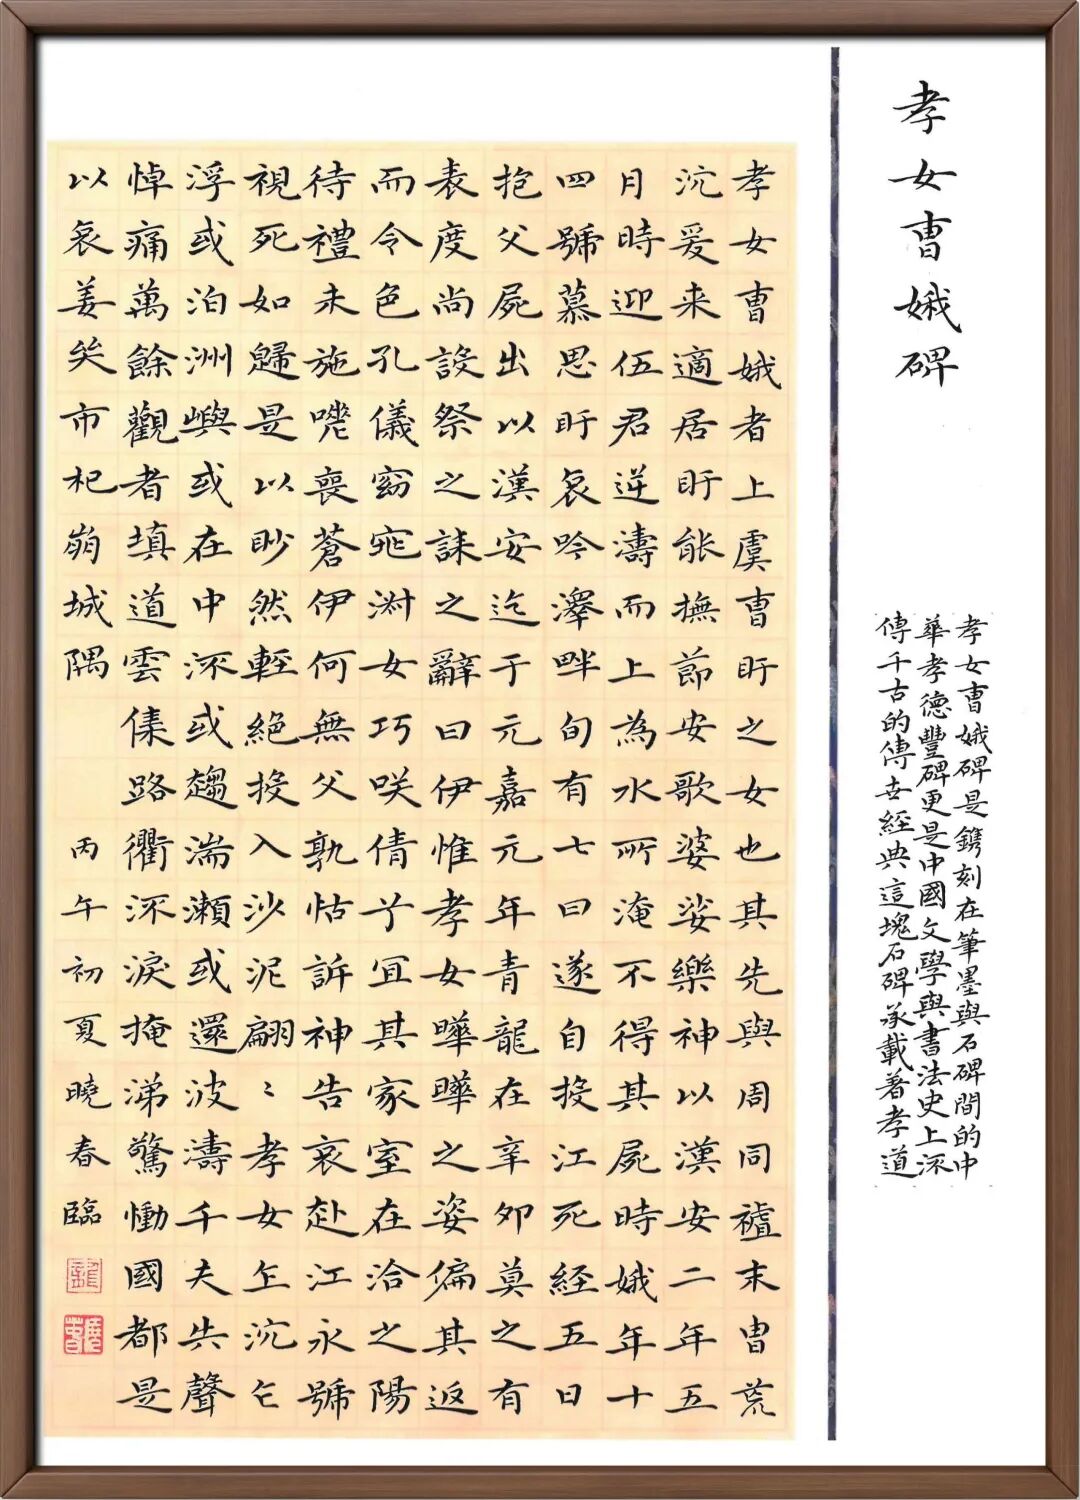 孝女曹娥碑
孝女曹娥碑是鐫刻在筆墨與石碑間的中
華孝德豐碑更是中國文學與書法史上流
傳千古的傳世經典這塊石碑承載著孝道
孝女曹娥者上虞曹盱之女也其先與周同祖末胄荒
沉爰来適居盱能撫節安歌婆娑樂神以漢安二年五
月時迎伍君逆濤而上為水所淹不得其屍時娥年十
四號慕思盱哀吟澤畔旬有七日遂自投江死経五日
抱父屍出以漢安迄于元嘉元年青龍在辛卯莫之有
表度尚設祭之誄之辭曰伊惟孝女曄曄之姿偏其返
而令色孔儀窈窕淑女巧咲倩兮宜其家室在洽之陽
待禮未施嗟喪蒼伊何無父孰怙訴神告哀赴江永號
視死如歸是以眇然輕絕投入沙泥翩〻孝女乍沉乍
浮或泊洲嶼或在中流或趨湍瀨或還波濤千夫失聲
悼痛萬餘觀者填道雲集路衢流淚掩涕驚慟國都是
以哀姜哭市杞崩城隅
丙午初夏曉春臨